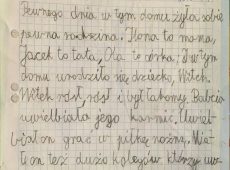 Pewnego dnia w tym domu żyła sobie
pewna rodzina. Ilona to mama,
Jacek to tata, Ola to córka. I w tym
domu urodziło się dziecko, Witek.
Witek rósł, rósł i był łakomy. Babcia
uwielbiała jego karmić. Uwiel-
biał on grać w piłkę nożną. Miał
on też dużo kolegów którzy